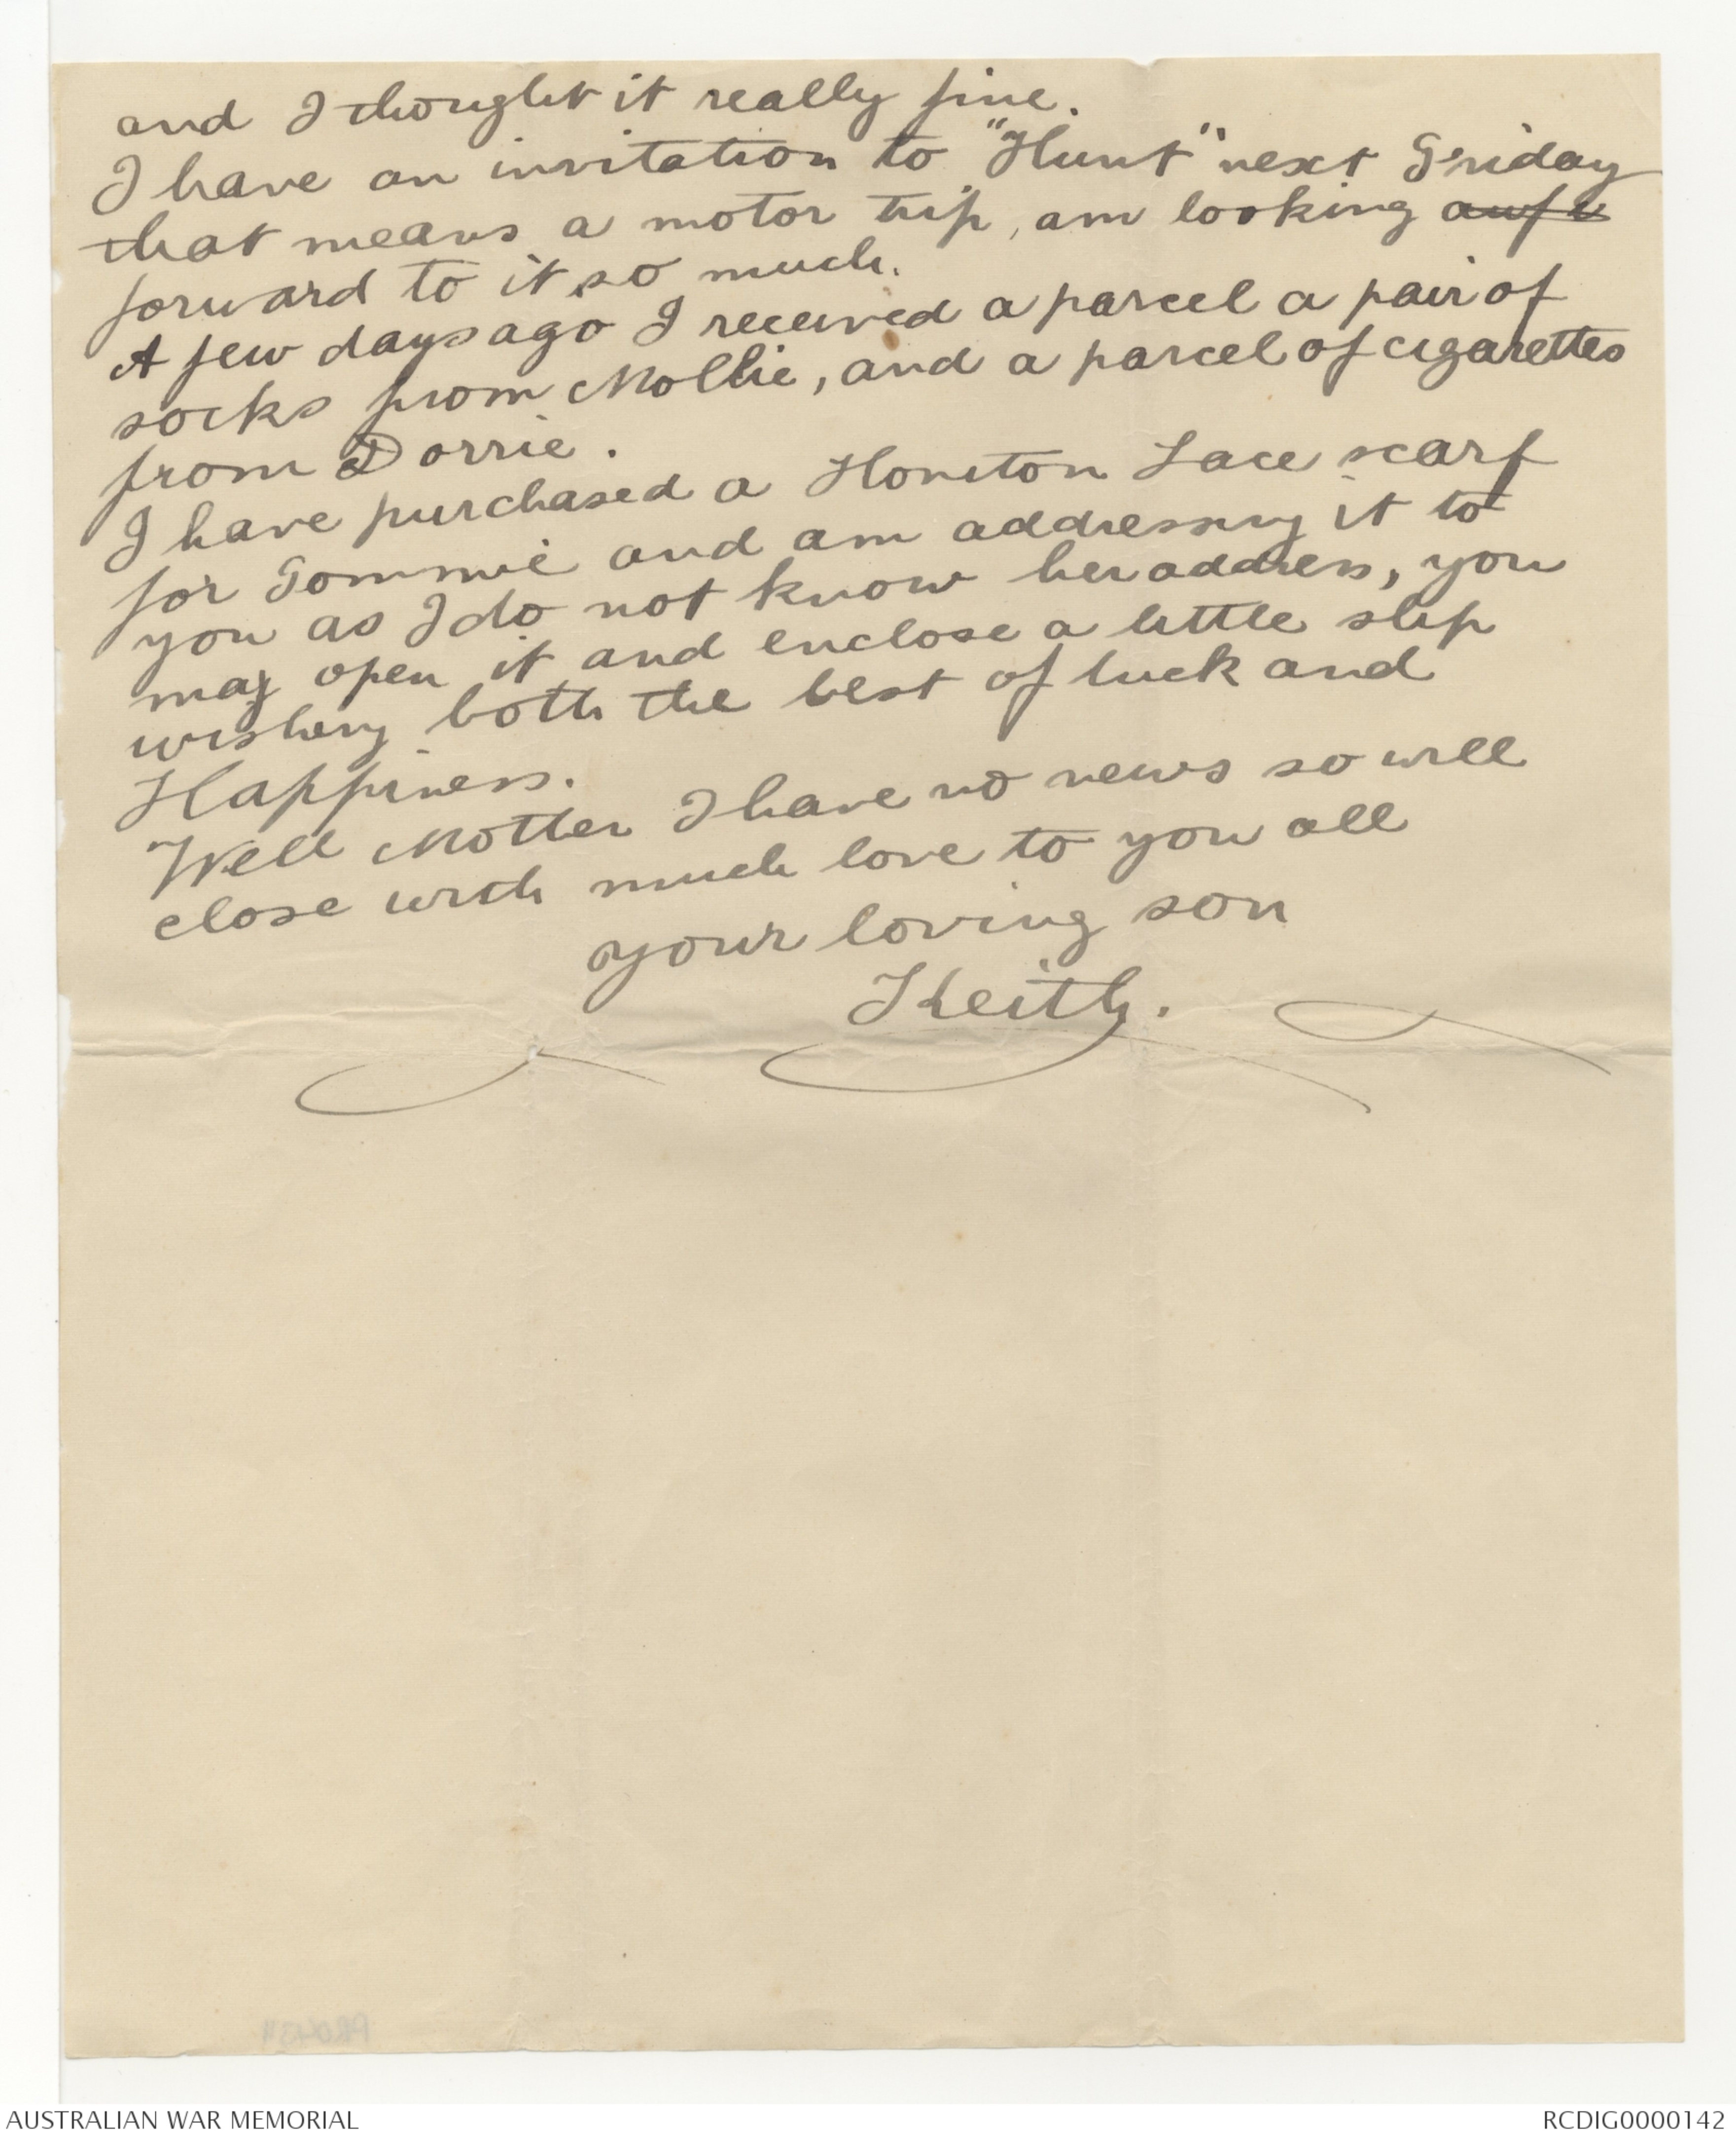 and I thought it really fine.
I have an invitation to "Hunt" next Friday
that means a motor trip, am looking
forward to it so much.
A few days ago I received a parcel a pair of
socks from Mollie, and a parcel of cigarettes
from Dorrie.
I have purchased a Honiton Lace scarf
for Tommie and am addressing it to
you as I do not know her address, you
may open it and enclose a little slip
wishing both the best of luck and
Happiness.
Well Mother I have no news so will
close with much love to you all
your loving son
Keith.
AUSTRALIAN WAR MEMORIAL
RCDIG0000142